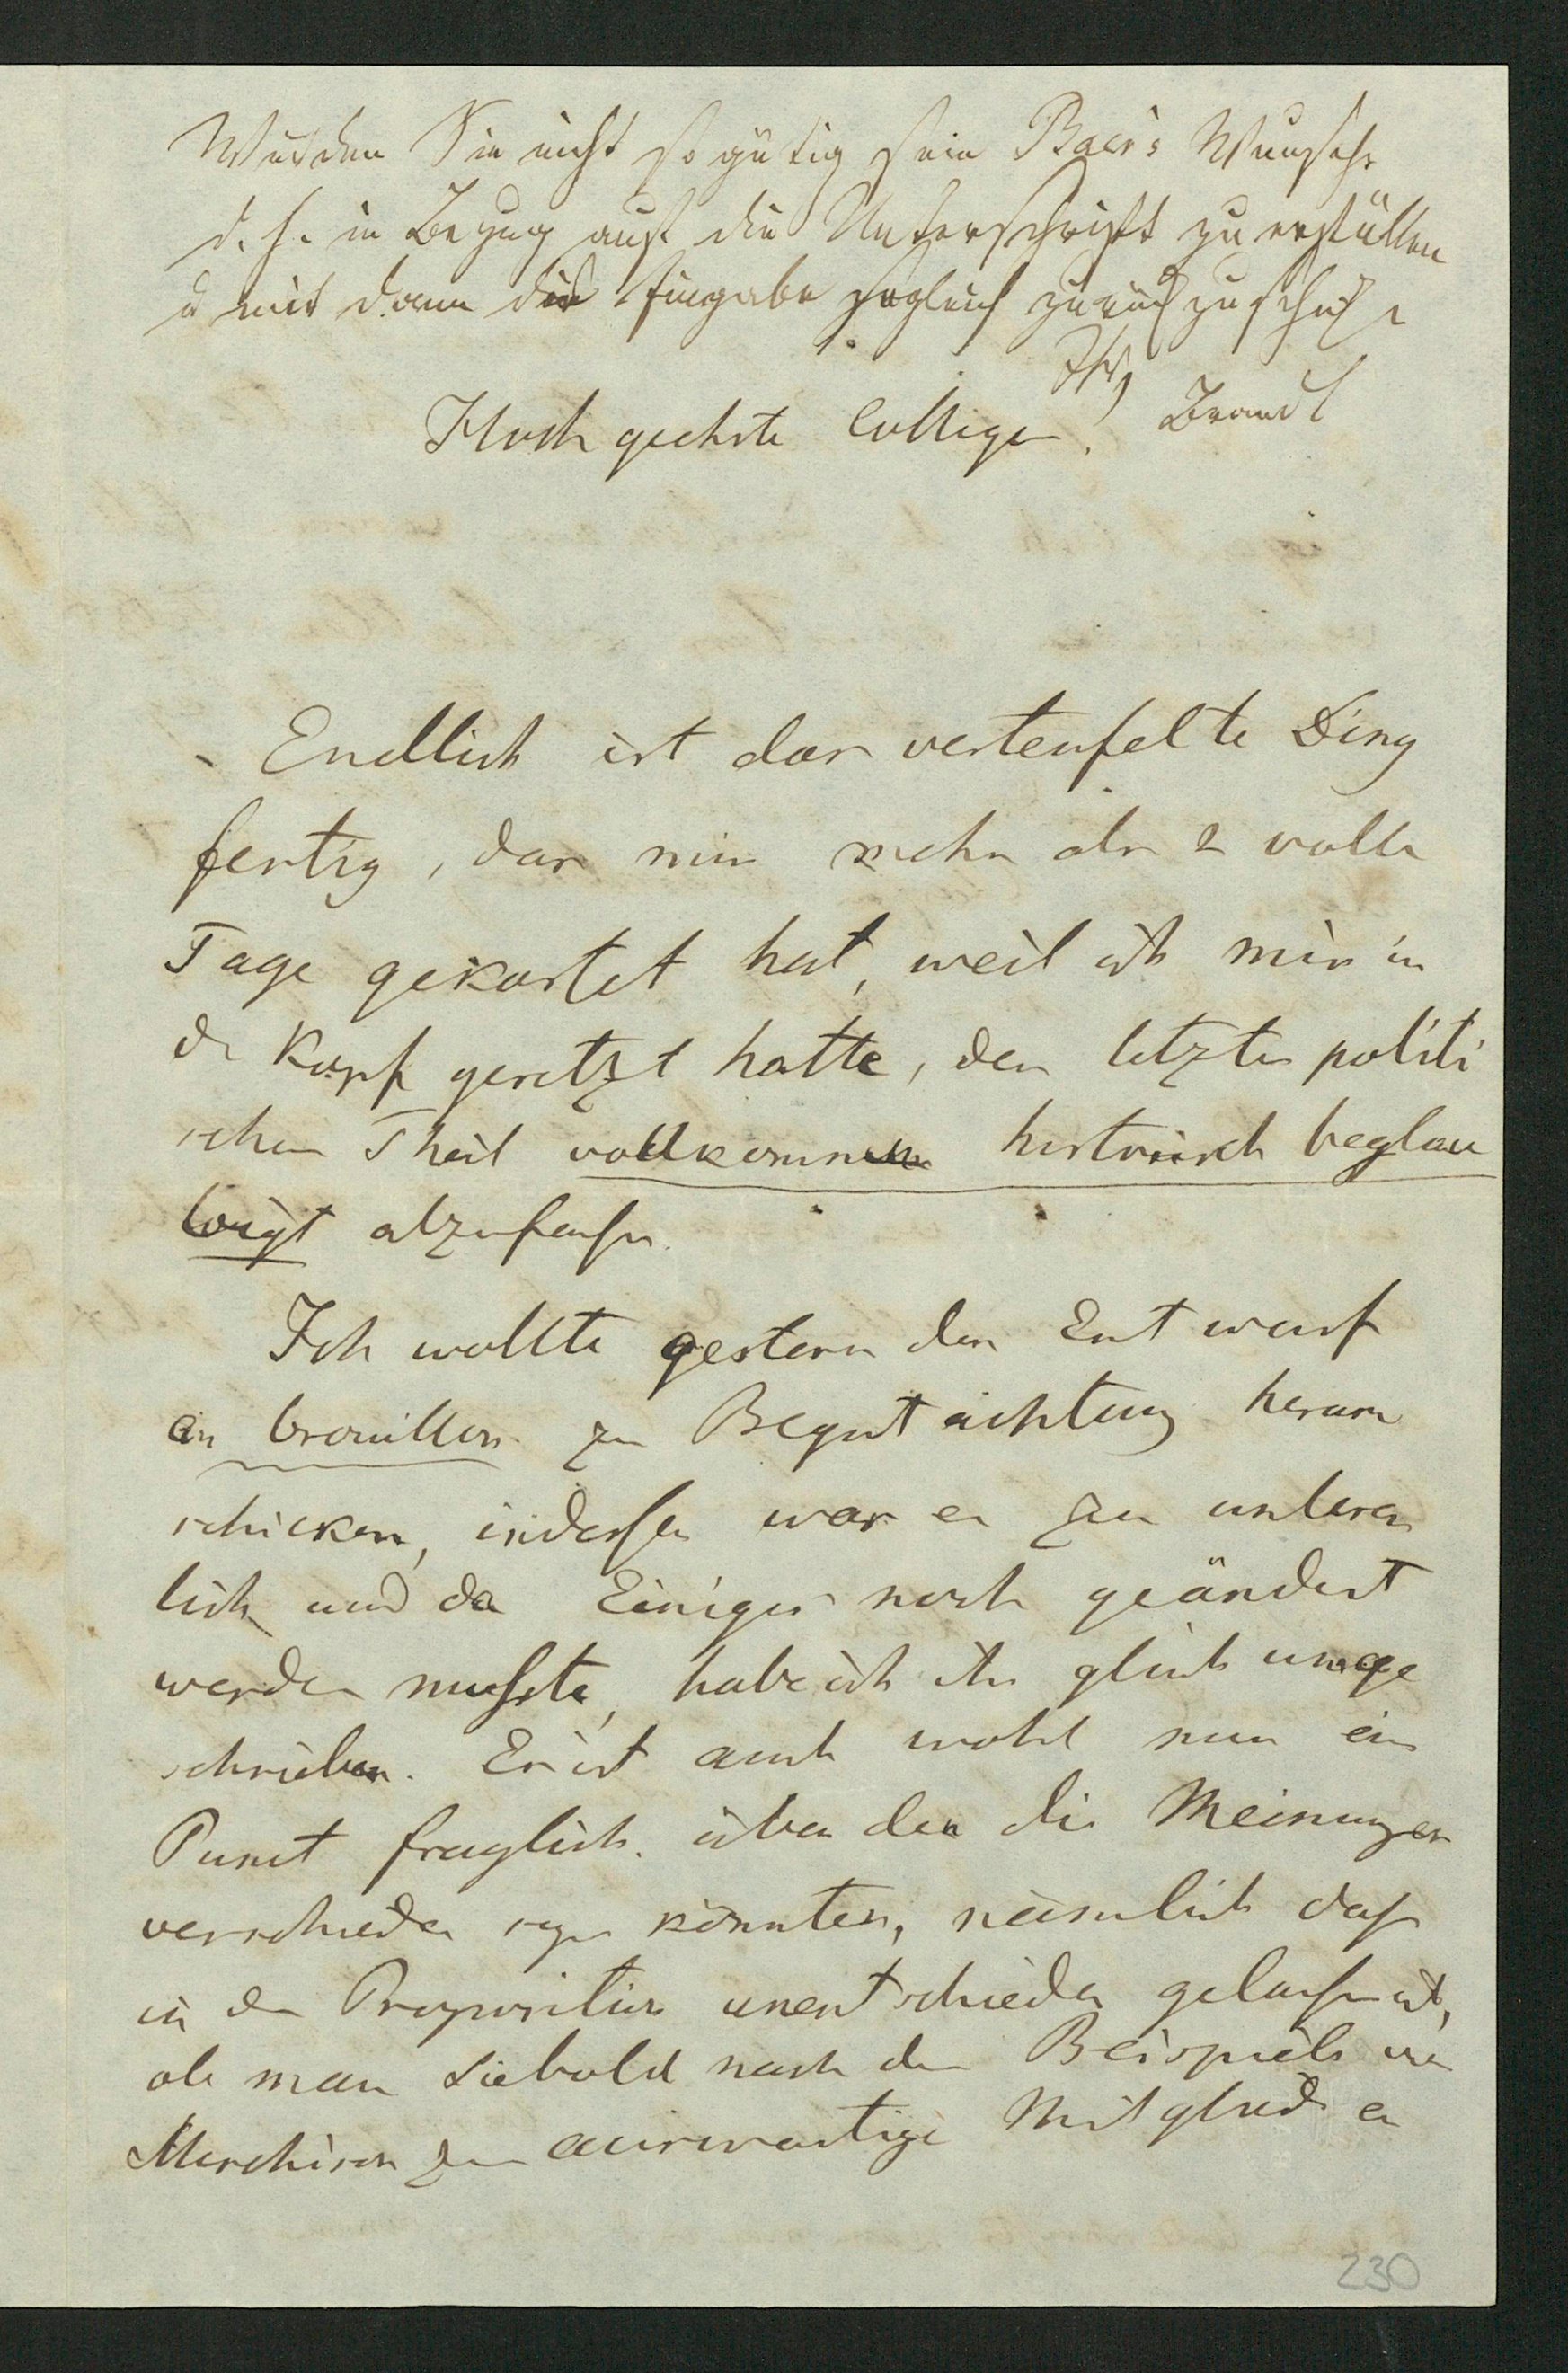 Würden Sie nicht so gütig sein Baer's Wunsch
d. h. in Bezug auf die Unterschrift zu erfüllen
u mir dann die Eingabe sogleich zurückzuschick
Ihr
Brandt
Hochgeehrte Collegen!
Endlich ist das verteufelte Ding
fertig, das mir mehr als 2 volle
Tage gekostet hat, weil ich mir in
den Kopf gesetzt hatte, den letzten politi
schen Theil vollkommen historisch beglau
bigt abzufassen.
Ich wollte gestern den Entwurf
en brouillon zur Begutachtung herum
schicken, indessen war er zu unleser
lich und da Einiges noch geändert
werden musste, habe ich ihn gleich umge
schrieben. Er ist auch wohl nur ein
Punct fraglich, über den die Meinungen
verschieden seyn könnten, nämlich dass
in der Proposition unentschieden gelassen ist,
ob man Siebold nach dem Beispiele von
Murchison zum auswärtigen Mitglied er
230